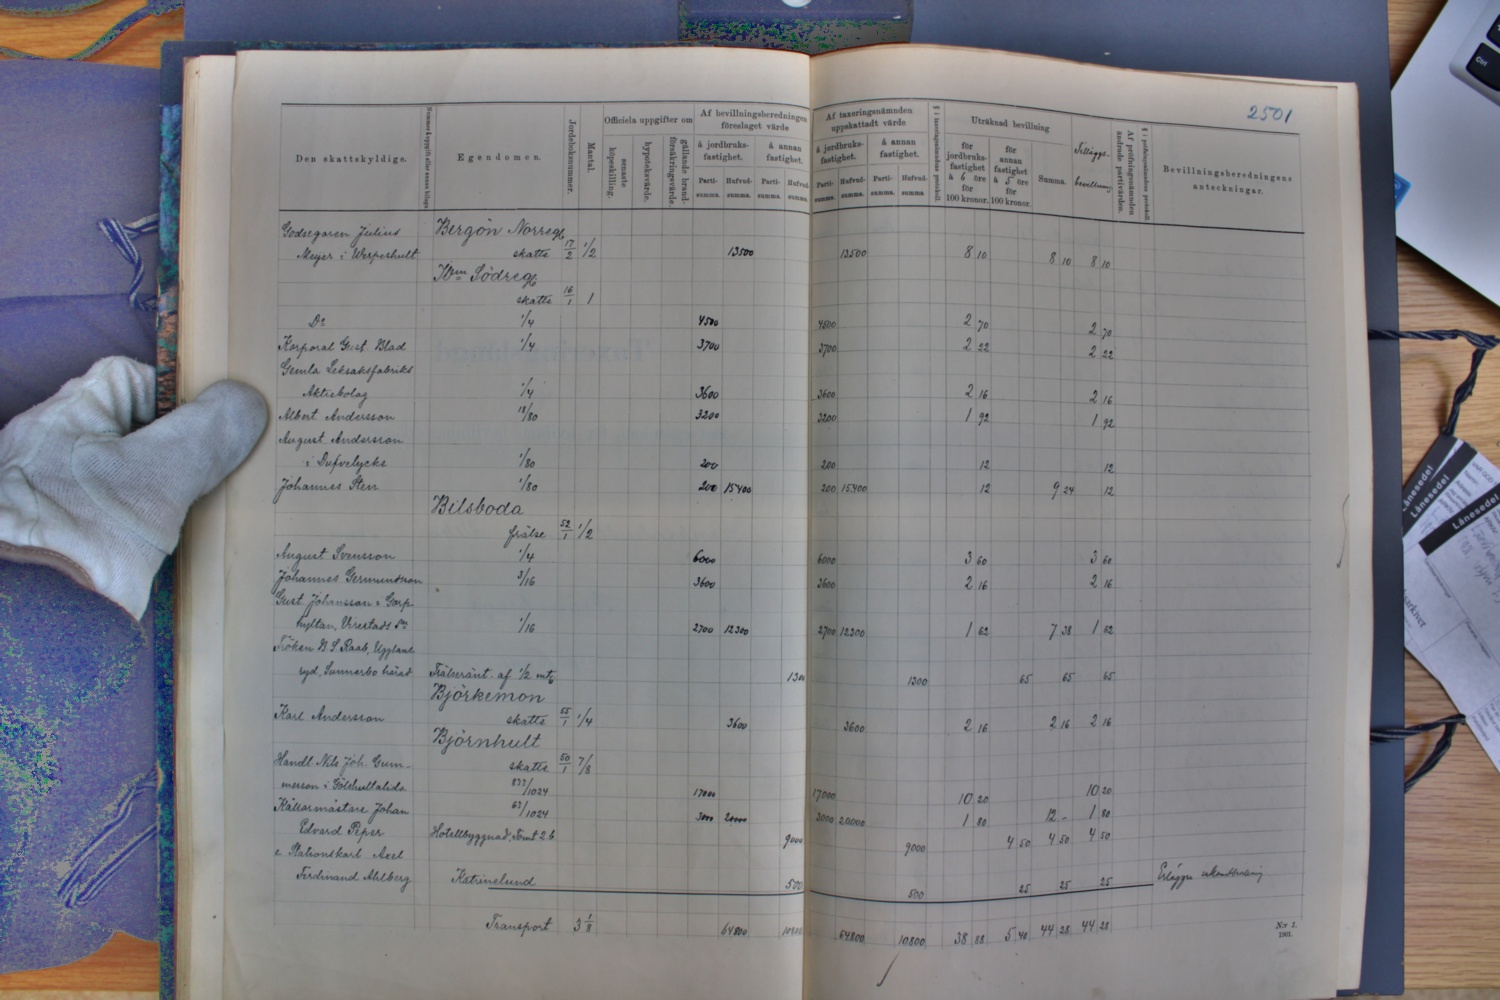 2501
Den skattskyldige.
Egendomen.
Jordeboksnummer.
Mantal.
Officiela uppgifter om
senaste köpeskilling.
hypoteksvärde.
gällande brandförsäkringsvärde.
Af bevillningsberedningen föreslaget värde
å jordbruksfastighet.
å annan fastighet.
Parti-summa. Hufvud-summa. Parti-summa. Hufvud-summa.
Af taxeringsnämnden uppskattadt värde
å jordbruksfastighet.
å annan fastighet.
Parti-summa. Hufvud-summa. Parti-summa. Hufvud-summa.
Uträknad bevillning
för jordbruksfastighet à 6 öre för 100 kronor.
för annan fastighet à 5 öre för 100 kronor.
Summa.
Tilläggsbevillning
Af pröfningsnämnden ändrade partivärden.
Bevillningsberedningens anteckningar.
Godsegaren Julius Bergön Norreg.
Meijer i Werpeshult skatte 17/2 1/2 13500 13500 8 10 8 10 8 10
Dem Södreg.
skatte 16/1 1
Do 1/4 4500 4500 2 70 2 70
Korporal Gust. Blad 1/4 3700 3700 2 22 2 22
Gemla Leksaksfabriks
Aktiebolag 1/4 3600 3600 2 16 2 16
Albert Andersson 18/80 3200 3200 1 92 1 92
August Andersson
i Dufvelycke 1/80 200 200 12 12
Johannes Sten 1/80 200 15400 200 15400 12 9 24 12
Bilsboda
frälse 52/1 1/2
August Svensson 1/4 6000 6000 3 60 3 60
Johannes Germundsson 3/16 3600 3600 2 16 2 16
Gust. Johansson i
hyltan, Virestads Sn 1/16 2700 12300 2700 12300 1 62 7 38 1 62
Fröken Raab,
ryd, Sunnerbo härad Frälseränt. af 1/2 mtl 1300 1300 65 65 65
Björkemon
Karl Andersson skatte 55/1 1/4 3600 3600 2 16 2 16 2 16
Björnhult
Handl. Nils Joh. Gum- skatte 50/1 7/8
merson i 833/1024 17000 17000 10 20 10 20
Källarmästare Johan 63/1024 3000 20000 3000 20000 1 80 12 - 1 80
Edvard Piper Hotellbyggnad, Tomt 2 b 9000 9000 4 50 4 50 4 50
e. Stationskarl Axel
Ferdinand Ahlberg Katrinelund 500 500 25 25 25
Transport 3 1/8 64800 10800 64800 10800 38 88 5 40 44 28 44 28
N:r 1.
1901.
Ctrl
Lånesedel
Lånesedel
Lånesedel